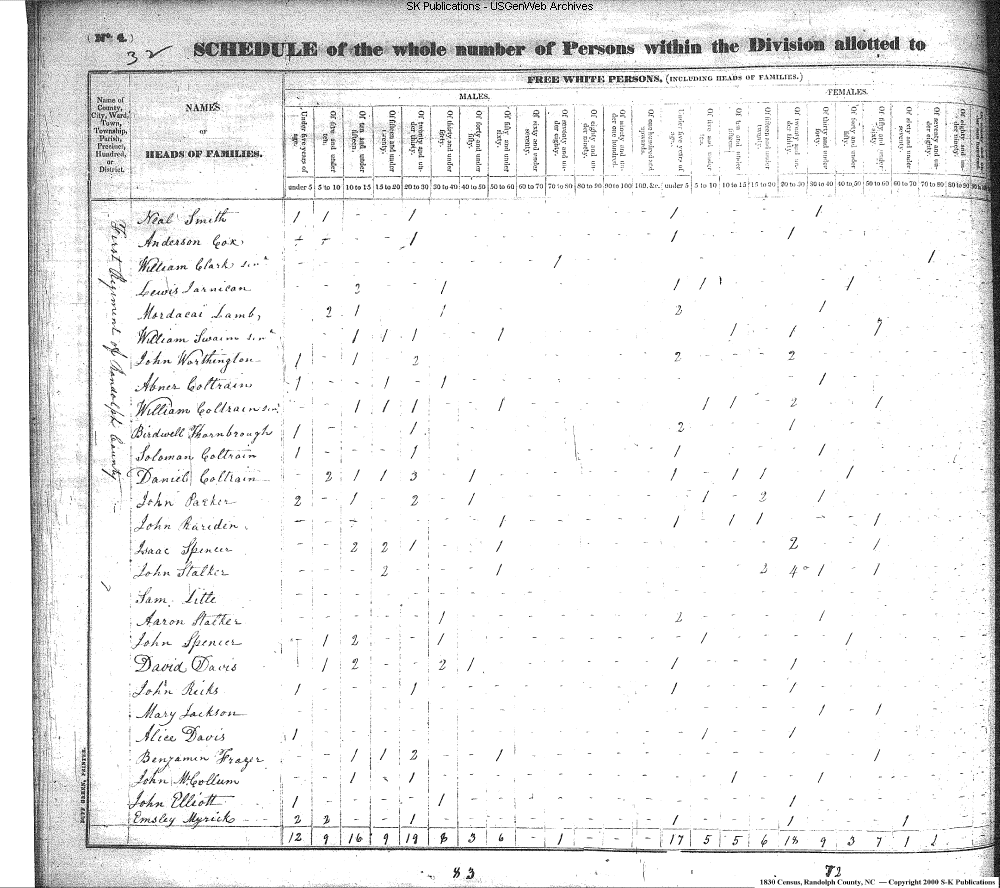 SK Publications - USGenWeb Archives
(No 4.)
32
SCHEDULE of the whole number of Persons within the Division allotted to
FREE WHITE PERSONS, (INCLUDING HEADS OF FAMILIES.)
MALES. FEMALES.
Name of County, City, Ward, Town, Township, Parish, Precinct, Hundred, or District.
NAMES
OR
HEADS OF FAMILIES.
Under five years of age. Of five and under ten. Of ten and under fifteen. Of fifteen and under twenty. Of twenty and under thirty. Of thirty and under forty. Of forty and under fifty. Of fifty and under sixty. Of sixty and under seventy. Of seventy and under eighty. Of eighty and under ninety. Of ninety and under one hundred. Of one hundred and upwards. Under five years of age. Of five and under ten. Of ten and under fifteen. Of fifteen and under twenty. Of twenty and under thirty. Of thirty and under forty. Of forty and under fifty. Of fifty and under sixty. Of sixty and under seventy. Of seventy and under eighty. Of eighty and under ninety.
under 5 5 to 10 10 to 15 15 to 20 20 to 30 30 to 40 40 to 50 50 to 60 60 to 70 70 to 80 80 to 90 90 to 100 100, &c. under 5 5 to 10 10 to 15 15 to 20 20 to 30 30 to 40 40 to 50 50 to 60 60 to 70 70 to 80 80 to 90
First Regiment of Randolph County
Neal Smith 1 1 - - 1 - - - - - - - - 1 - - - - 1 - - - - -
Anderson Cox - - - - 1 - - - - - - - - 1 - - - 1 - - - - - -
William Clark senr - - - - - - - - - 1 - - - - - - - - - - - - 1 -
Lewis Jarnican - - 2 - - 1 - - - - - - - 1 1 1 - - - 1 - - - -
Mordacai Lamb - 2 1 - - 1 - - - - - - - 2 - - - - 1 - - - - -
William Swaim senr - - 1 1 1 - - 1 - - - - - - - 1 - 1 - - 7 - - -
John Worthington 1 - 1 - 2 - - - - - - - - 2 - - - 2 - - - - - -
Abner Coltrain 1 - - 1 - 1 - - - - - - - - - - - - 1 - - - - -
William Coltrain senr - - 1 1 1 - - 1 - - - - - - 1 1 - 2 - - 1 - - -
Birdwell Thornbrough 1 - - - 1 - - - - - - - - 2 - - - 1 - - - - - -
Soloman Coltrain 1 - - - 1 - - - - - - - - 1 - - - - 1 - - - - -
Daniel Coltrain - 2 1 1 3 - 1 - - - - - - 1 - 1 1 - - 1 - - - -
John Parker 2 - 1 - 2 - 1 - - - - - - - 1 - 2 - 1 - - - - -
John Rareden - - - - - - - 1 - - - - - 1 - 1 1 - - - 1 - - -
Isaac Spencer - - 2 2 1 - - 1 - - - - - - - - - 2 - - 1 - - -
John Stalker - - - 2 - - - 1 - - - - - - - - 2 4 1 - 1 - - -
Sam Litte - - - - - - - - - - - - - - - - - - - - - - - -
Aaron Stalker - - - - - 1 - - - - - - - 2 - - - - 1 - - - - -
John Spencer - 1 2 - - 1 - - - - - - - - 1 - - - - 1 - - - -
David Davis - 1 2 - - 2 1 - - - - - - 1 - - - 1 - - - - - -
John Ricks 1 - - - 1 - - - - - - - - 1 - - - 1 - - - - - -
Mary Jackson - - - - - - - - - - - - - - - - - - 1 - 1 - - -
Alice Davis 1 - - - - - - - - - - - - - 1 - - 1 - - - - - -
Benjamin Frazer - - 1 1 2 - - 1 - - - - - - - - - - - - 1 - - -
John McCollum - - 1 - 1 - - - - - - - - - - 1 - - 1 - - - - -
John Elliott 1 - - - - 1 - - - - - - - - - - - 1 - - - - - -
Emsley Myrick 2 2 - - 1 - - - - - - - - 1 - - - 1 - - - 1 - -
12 9 16 9 19 8 3 6 - 1 - - - 17 5 5 6 18 9 3 7 1 1
83 72
DUFF GREEN, PRINTER.
1830 Census, Randolph County, NC — Copyright 2000 S-K Publications